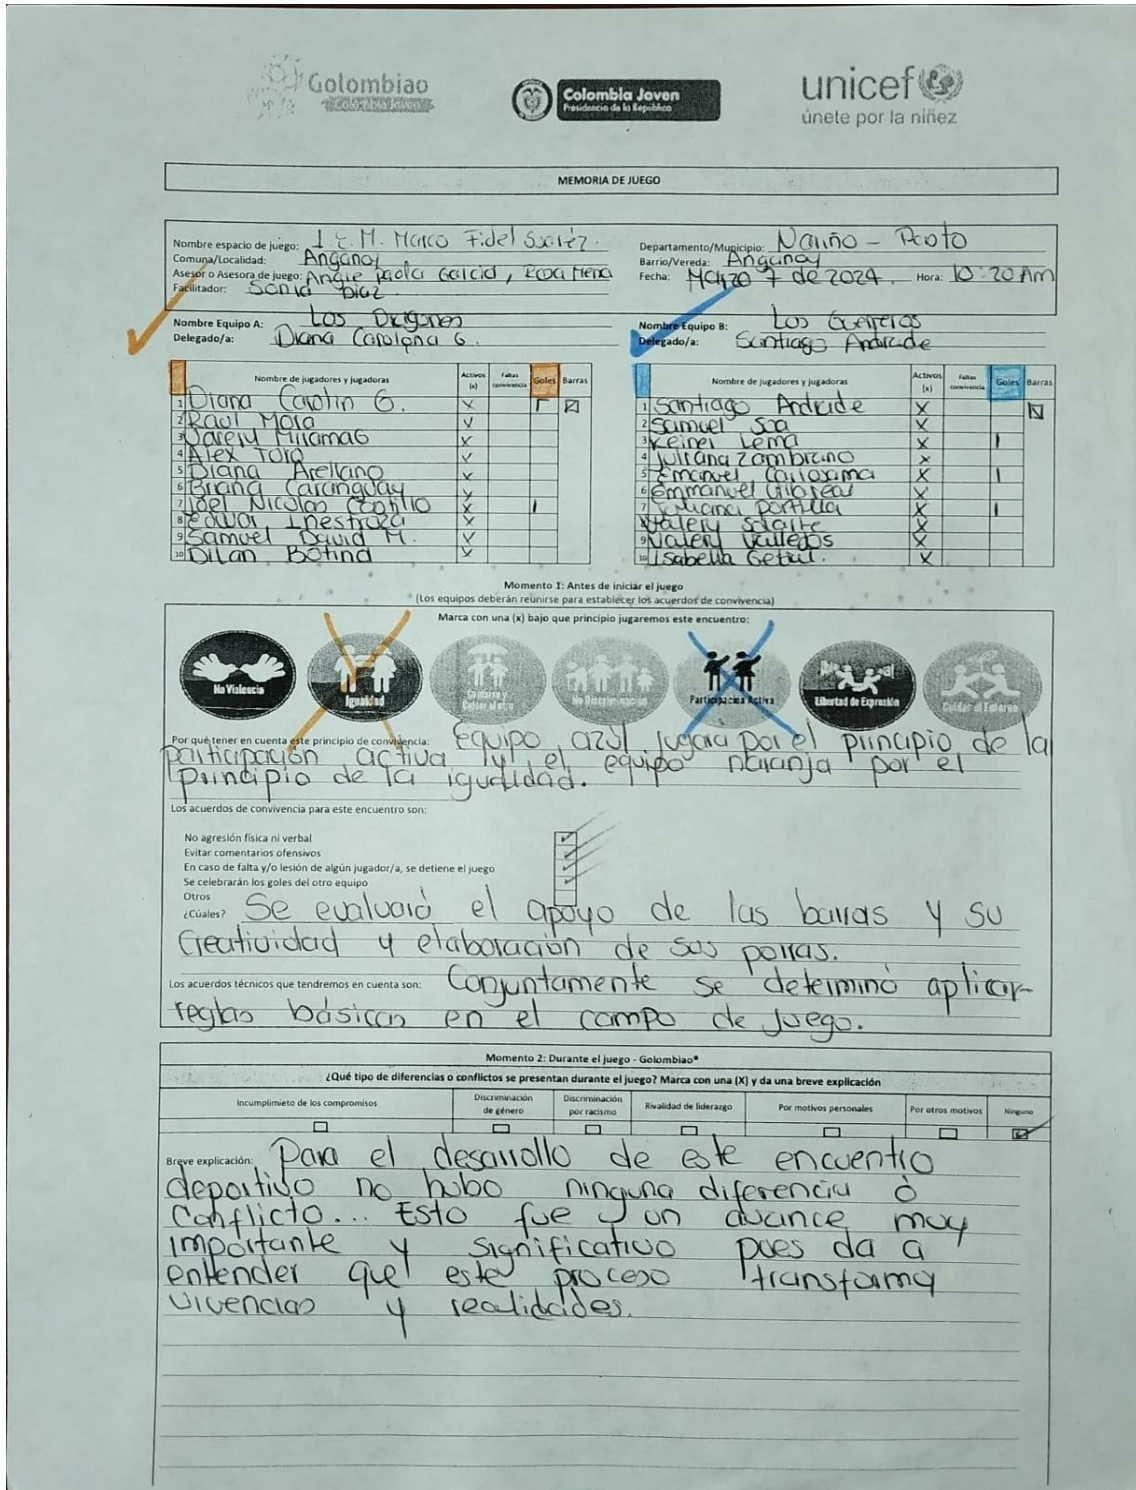 Golombiao
Colombia Joven
Colombia Joven
Presidencia de la República
unicef
únete por la niñez
MEMORIA DE JUEGO
Nombre espacio de juego: I.E.M. Marco Fidel Suaréz.
Departamento/Municipio: Nariño - Pasto
Comuna/Localidad: Anganoy
Barrio/Vereda: Anganoy
Asesor o Asesora de juego: Angie Paola Garcia, Rosa Mena
Fecha: Marzo 7 de 2024. Hora: 10:20 Am
Facilitador: Sonia Diaz.
Nombre Equipo A: Los Dragones
Nombre Equipo B: Los Guerreros
Delegado/a: Diana Carolona G.
Delegado/a: Santiago Andrade
Nombre de jugadores y jugadoras Activos (x) Faltas convivencia Goles Barras
1 Diana Carolin G. X
2 Raul Mora X
3 Milamag X
4 Alex Toro X
5 Diana Arellano X
6 Briana Caranguay X
7 Joel Nicolas Castillo X I
8 Edwar Inestroza X
9 Samuel David M. X
10 Dilan Botina X
Nombre de jugadores y jugadoras Activos (x) Faltas convivencia Goles Barras
1 Santiago Andrade X
2 Samuel X
3 Keiner Lema X I
4 Juliana Zambrano X
5 Emanuel X I
6 Emmanuel X
7 Juliana Portilla X I
8 Valery Solarte X
9 Valery Vallejos X
10 Isabella X
Momento 1: Antes de iniciar el juego
(Los equipos deberán reunirse para establecer los acuerdos de convivencia)
Marca con una (x) bajo que principio jugaremos este encuentro:
No Violencia
Igualdad
Cuidarse y Cuidar al otro
No Discriminación
Participación Activa
Libertad de Expresión
Cuidar el Entorno
Por qué tener en cuenta este principio de convivencia: Equipo azul jugara por el principio de la
participación activa y el equipo naranja por el
principio de la igualdad.
Los acuerdos de convivencia para este encuentro son:
No agresión física ni verbal
Evitar comentarios ofensivos
En caso de falta y/o lesión de algún jugador/a, se detiene el juego
Se celebrarán los goles del otro equipo
Otros
¿Cúales? Se evaluará el apoyo de las barras y su
creatividad y elaboración de sus porras.
Los acuerdos técnicos que tendremos en cuenta son: Conjuntamente se determinó aplicar
reglas básicas en el campo de juego.
Momento 2: Durante el juego - Golombiao*
¿Qué tipo de diferencias o conflictos se presentan durante el juego? Marca con una (X) y da una breve explicación
Incumplimieto de los compromisos
Discriminación de género
Discriminación por racismo
Rivalidad de liderazgo
Por motivos personales
Por otros motivos
Ninguno
Breve explicación: Para el desarrollo de este encuentro
deportivo no hubo ninguna diferencia ó
conflicto... Esto fue un avance muy
importante y significativo pues da a
entender que este proceso transforma
vivencias y realidades.